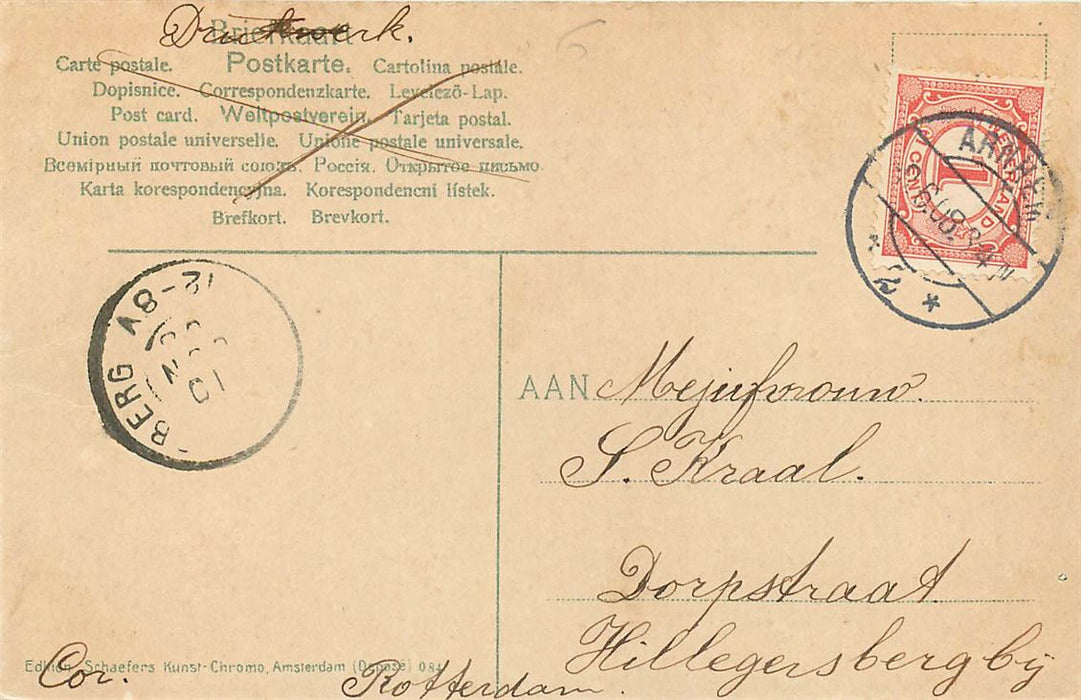 Drukwerk.
Briefkaart
Carte postale. Postkarte. Cartolina postale.
Dopisnice. Correspondenzkarte. Levelező-Lap.
Post card. Weltpostverein. Tarjeta postal.
Union postale universelle. Unione postale universale.
Всемірный почтовый союзъ. Россія. Открытое письмо.
Karta korespondencyjna. Korespondencni lístek.
Brefkort. Brevkort.
NEDERLAND
1
CENT
ARNHEM
6.08.2-4N
2
12-8V
BERG
AAN Mejufvrouw.
S. Kraal.
Dorpstraat
Hillegersberg bij
Rotterdam.
Cor.
Edition Schaefers Kunst-Chromo, Amsterdam (Deposé) 084